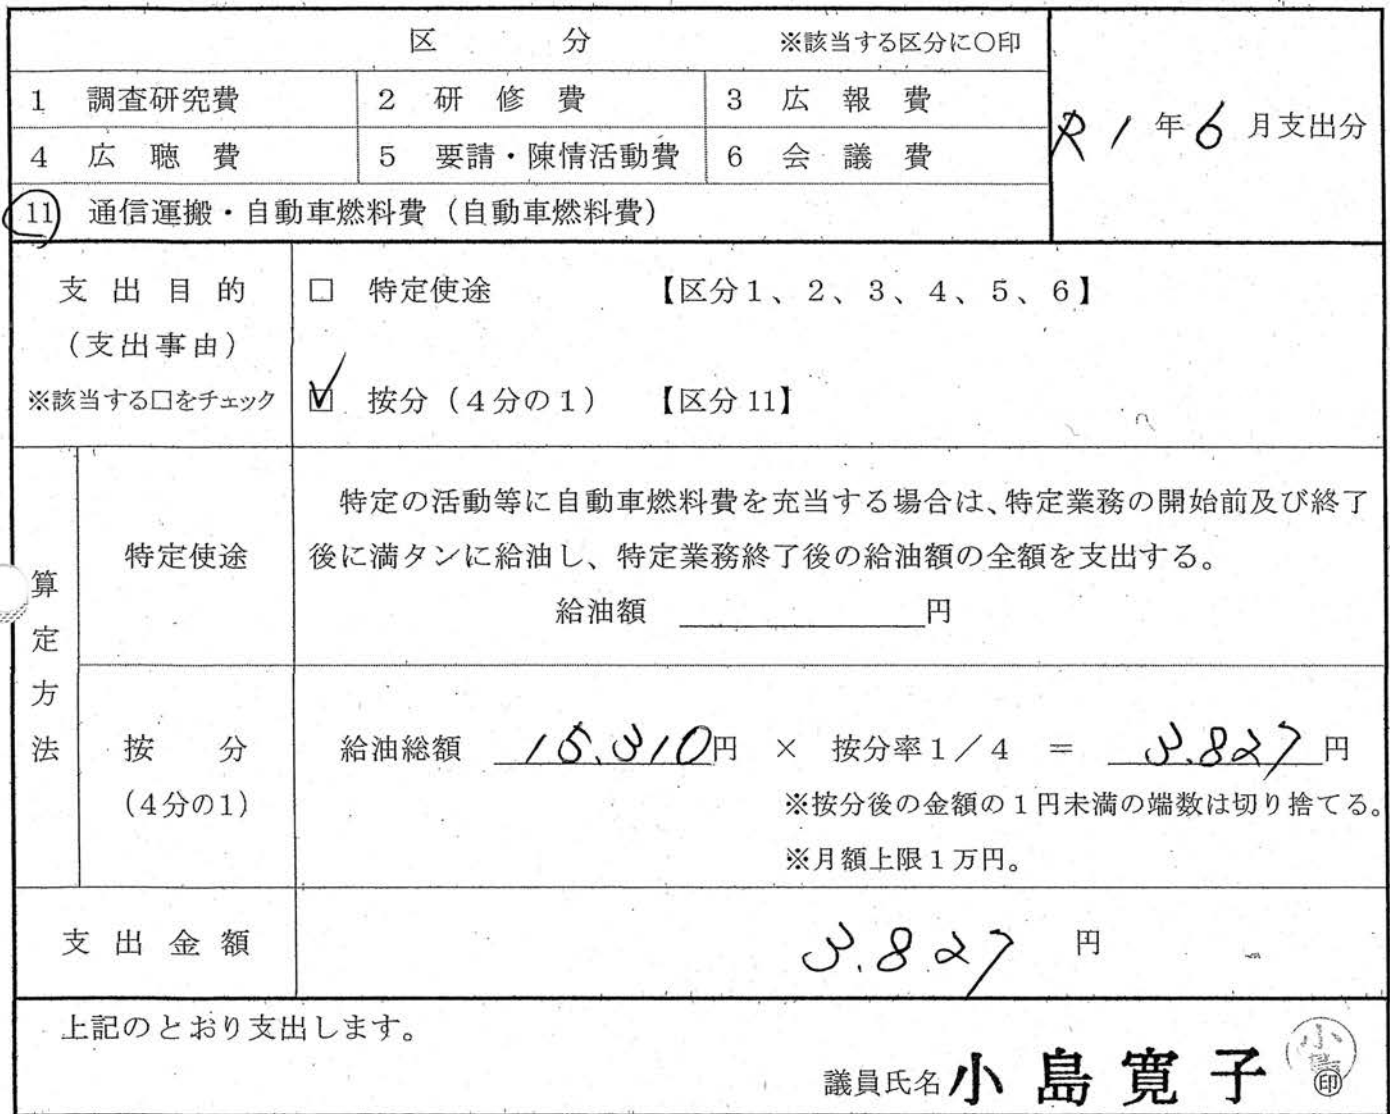 区 分 ※該当する区分に〇印
1 調査研究費 2 研修費 3 広報費
R1年6月支出分
4 広聴費 5 要請・陳情活動費 6 会議費
11 通信運搬・自動車燃料費（自動車燃料費）
支出目的
（支出事由）
※該当する□をチェック
□ 特定使途 【区分1、2、3、4、5、6】
☑ 按分（4分の1） 【区分11】
算定方法
特定使途
特定の活動等に自動車燃料費を充当する場合は、特定業務の開始前及び終了
後に満タンに給油し、特定業務終了後の給油額の全額を支出する。
給油額 円
按分
（4分の1）
給油総額 15.310円 × 按分率1／4 ＝ 3.827円
※按分後の金額の1円未満の端数は切り捨てる。
※月額上限1万円。
支出金額 3.827 円
上記のとおり支出します。
議員氏名 小島寛子 印
小島